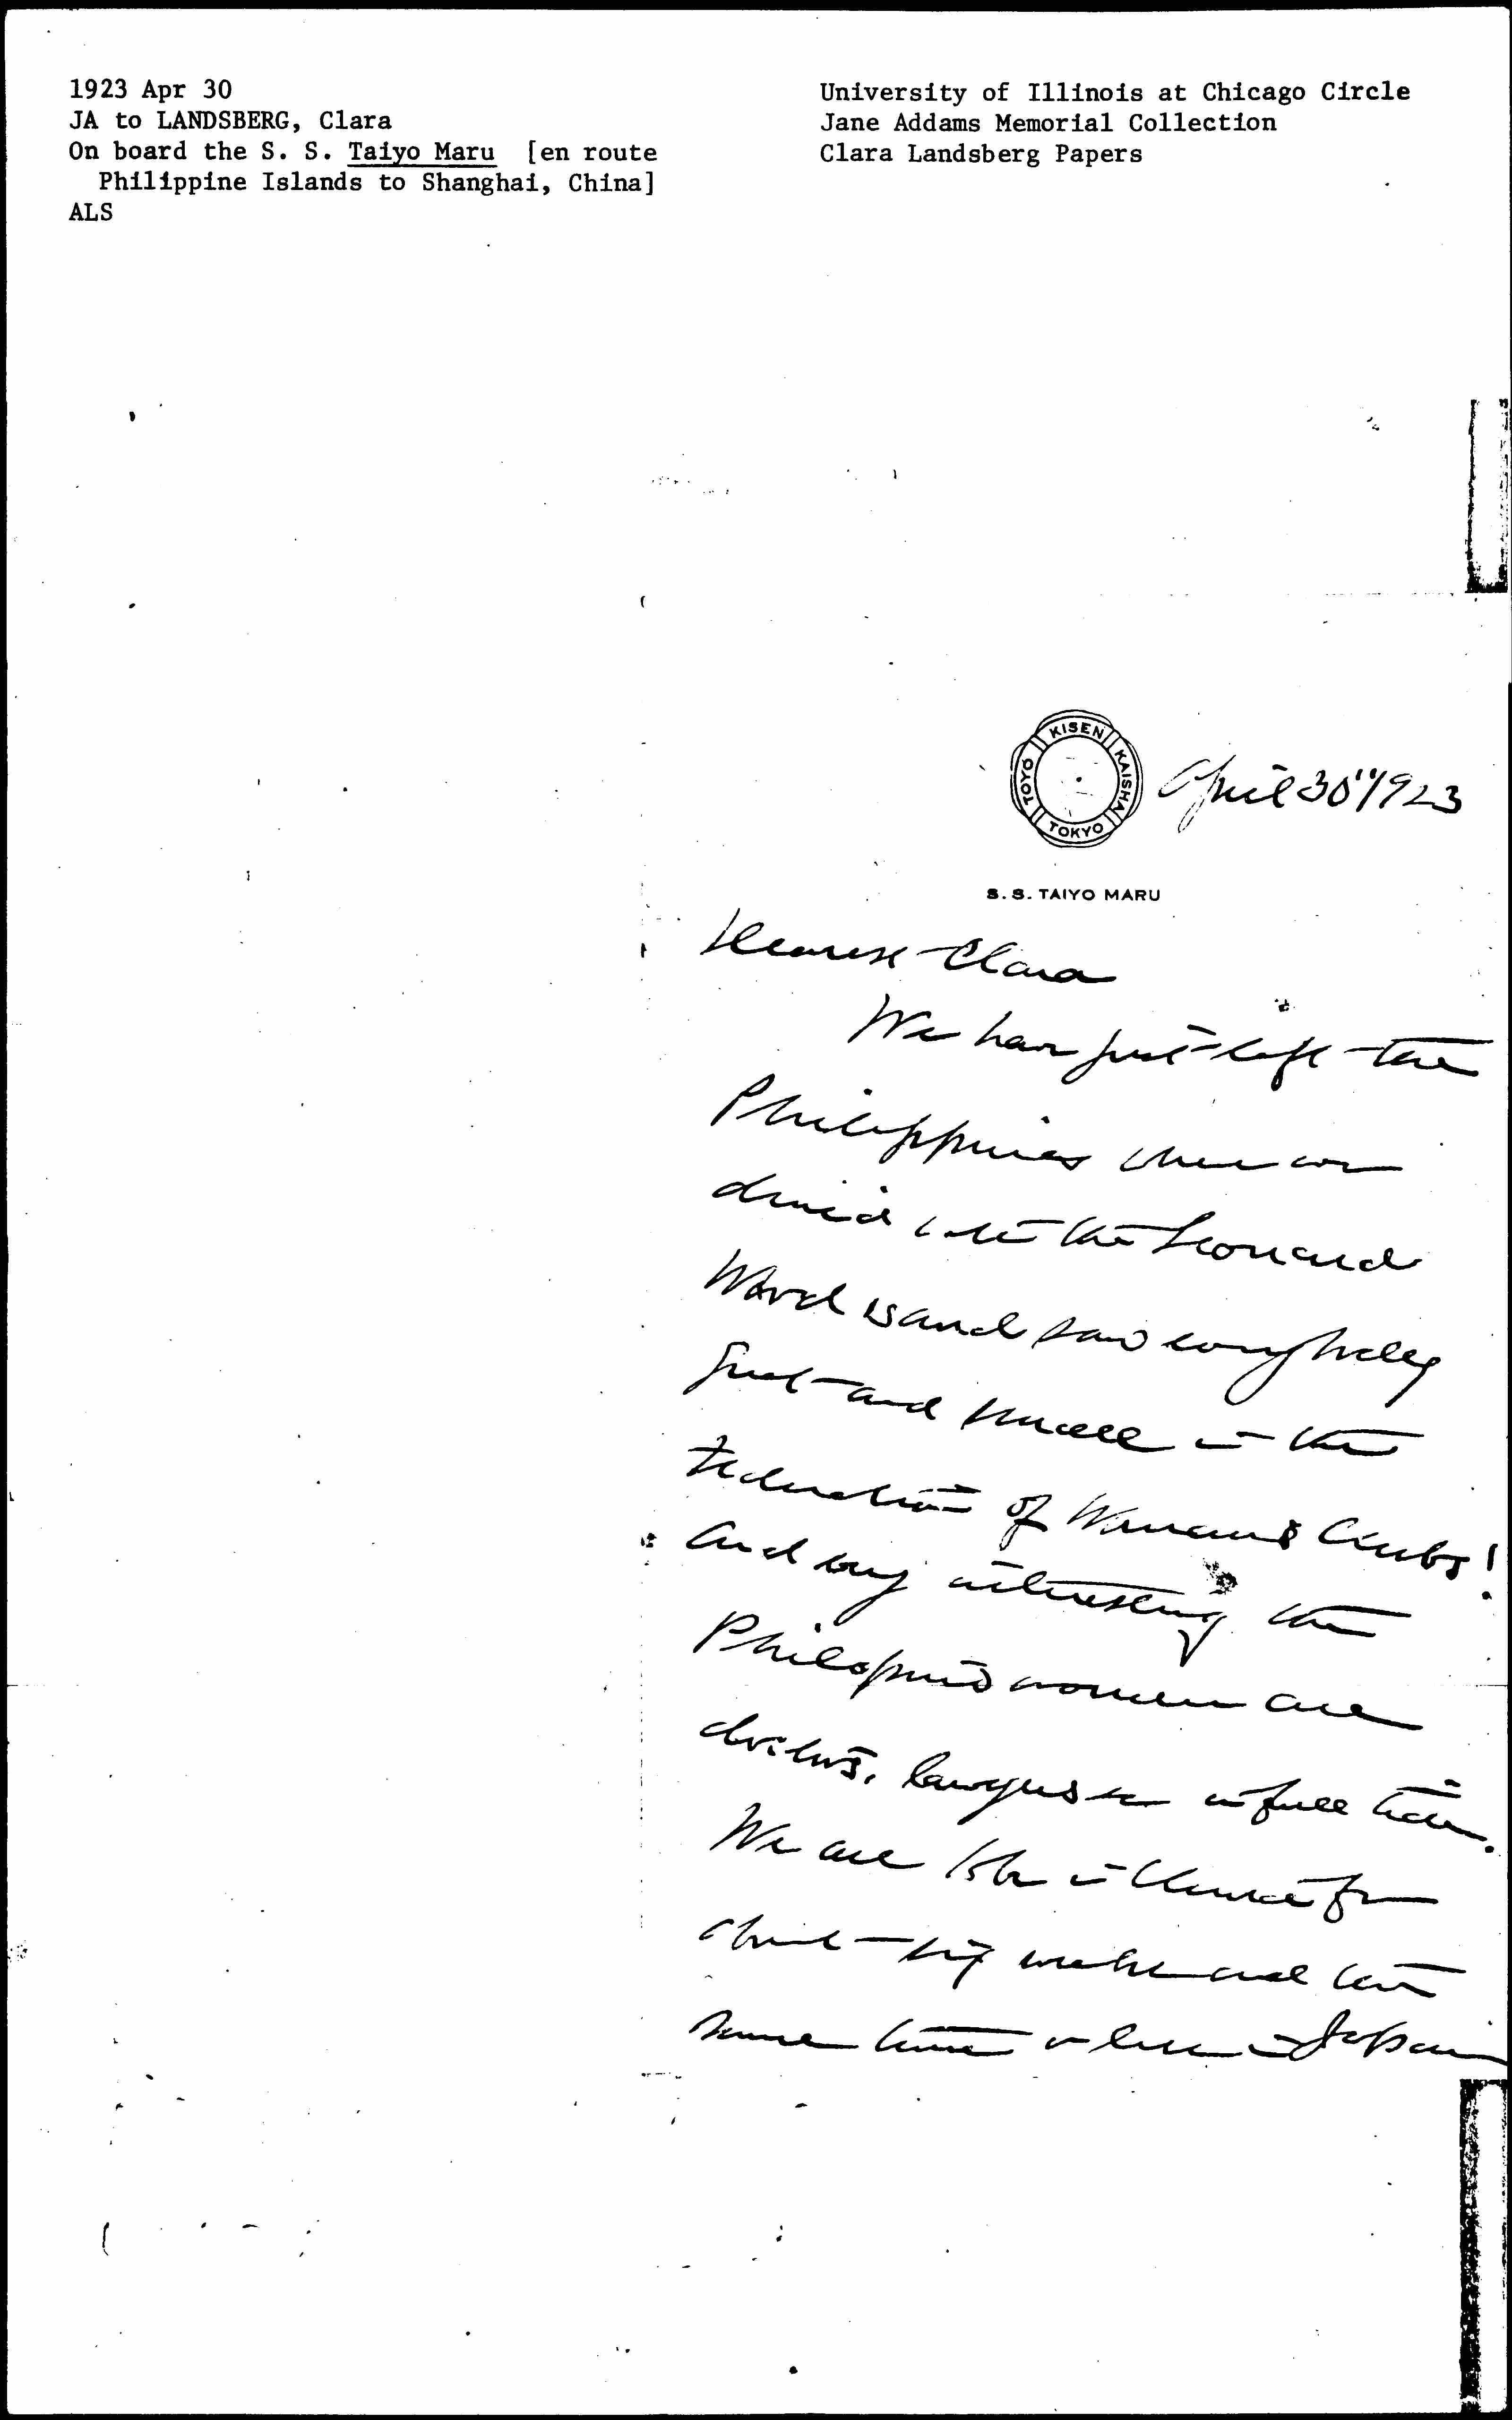 1923 Apr 30
JA to LANDSBERG, Clara
On board the S. S. Taiyo Maru [en route
Philippine Islands to Shanghai, China]
ALS
University of Illinois at Chicago Circle
Jane Addams Memorial Collection
Clara Landsberg Papers
TOYO KISEN KAISHA TOKYO
April 30" 1923
S. S. TAIYO MARU
Dearest Clara
We have just left the
Philippines where we
dined with the Leonard
Wood's and saw everybody
great and small in the
Federation of Woman's Clubs!
And very interesting the
Philopino women are
doctors, lawyers &c in full tide.
We are to be in China for
about six weeks and the
same time or less in Japan